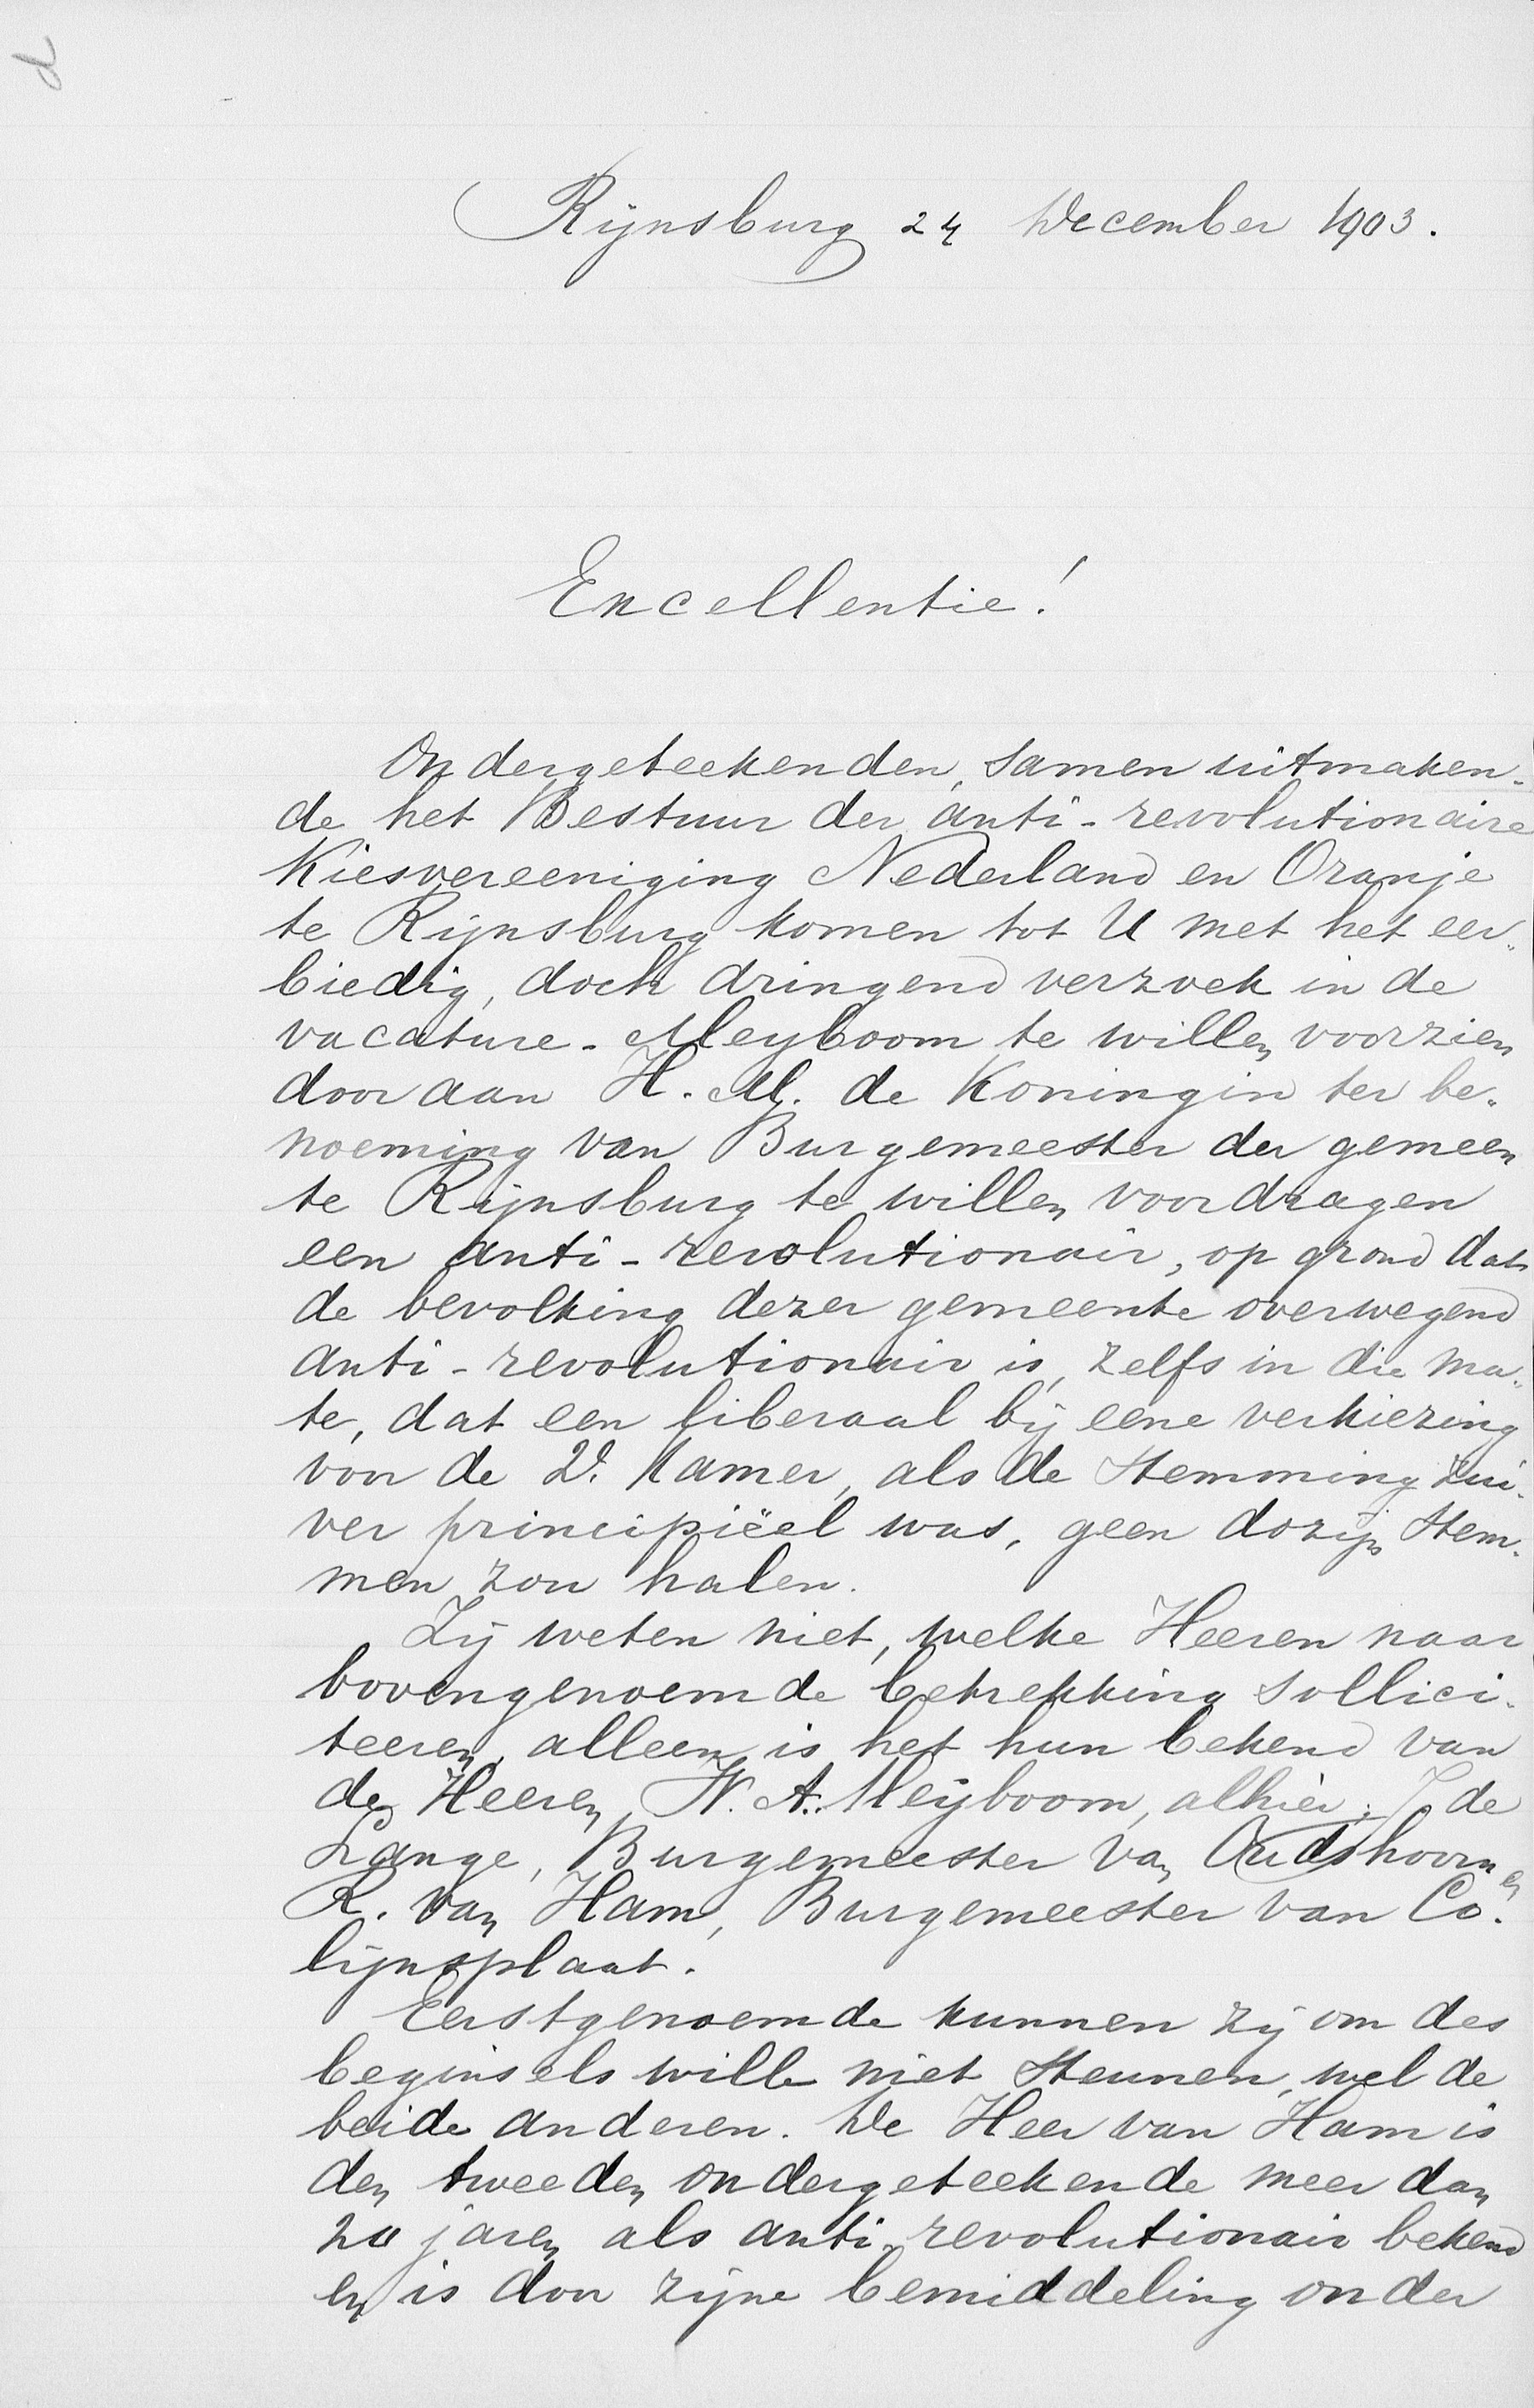 d
Rijnsburg 24 December 1903.
Excellentie!
Ondergeteekenden, samen uitmaken-
de het Bestuur der anti-revolutionaire
Kiesvereeniging Nederland en Oranje
te Rijnsburg komen tot U met het eer-
biedig, doch dringend verzoek in de
vacature-Meyboom te willen voorzien
door aan H. M. de Koningin ter be-
noeming van Burgemeester der gemeen
te Rijnsburg te willen voordragen
een anti-revolutionair, op grond dat
de bevolking dezer gemeente overwegend
anti-revolutionair is, zelfs in die ma-
te, dat een liberaal bij eene verkiezing
voor de 2e Kamer, als de stemming zui-
ver principiëel was, geen dozijn stem-
men zou halen.
Zij weten niet, welke Heeren naar
bovengenoemde betrekking sollici-
teeren, alleen is het hun bekend van
de Heeren, H. A. Meijboom, alhier; J. de
Lange, Burgemeester van Oudshoorn en
R. van Ham, Burgemeester van Co-
lijnsplaat.
Eerstgenoemde kunnen zij om des
beginsels wille niet steunen, wel de
beide anderen. De Heer van Ham is
den tweeden ondergeteekende meer dan
20 jaren als anti-revolutionair bekend
en is door zijne bemiddeling onder